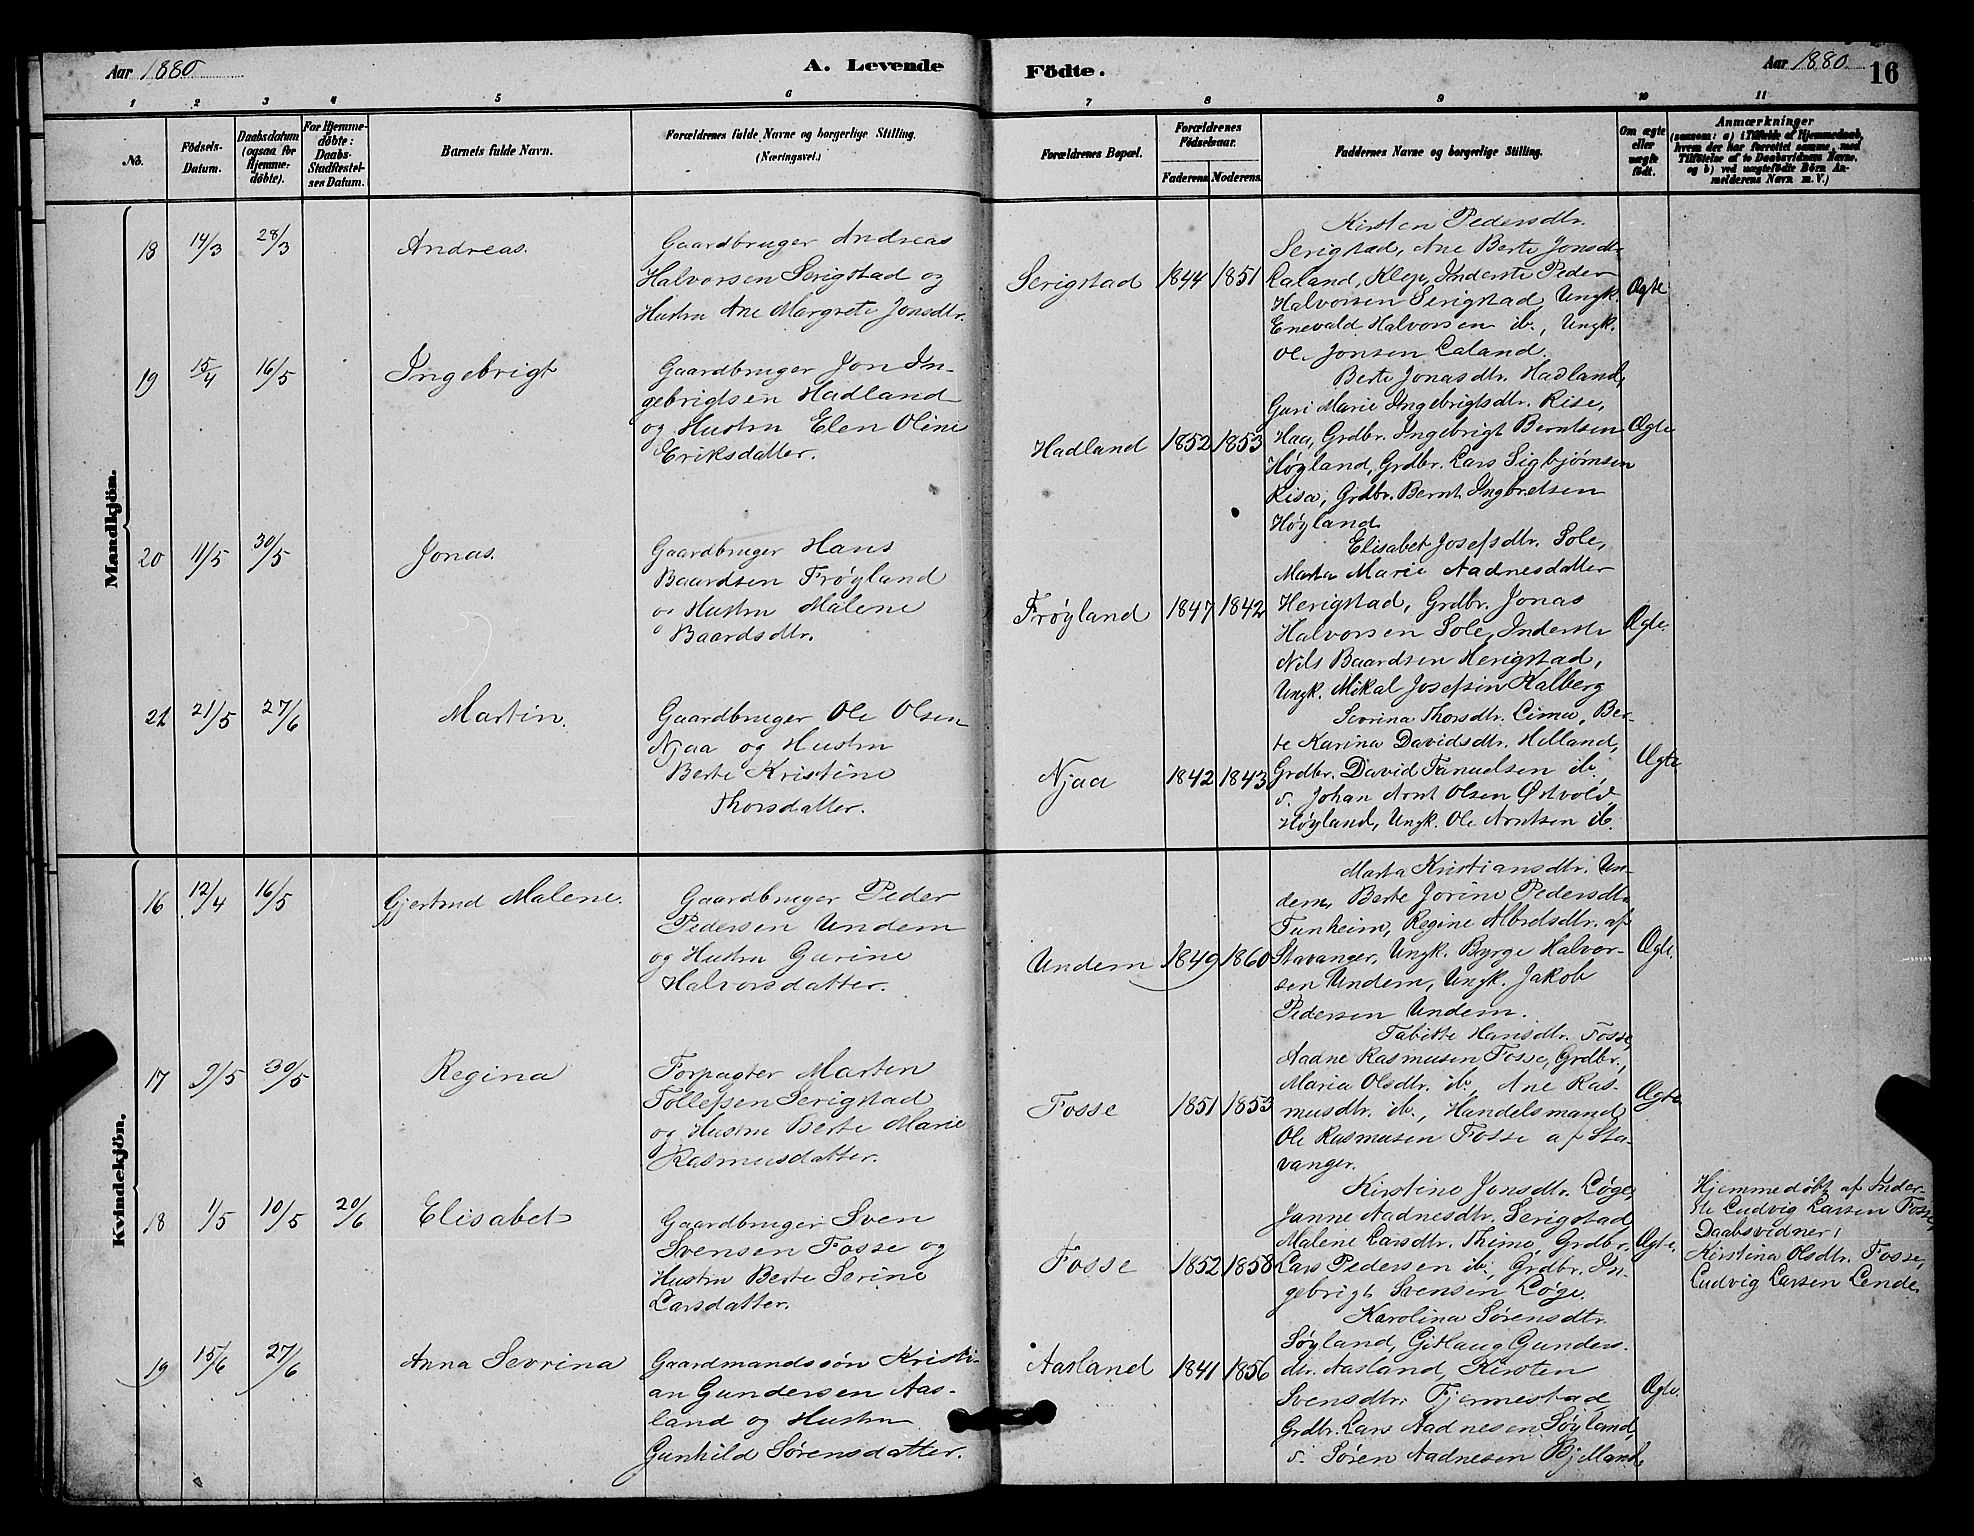 Aar 1880
A. Levende
Födte.
Aar 1880.
16
1 2 3 4 5 6 7 8 9 10 11
No.
Födsels-
Datum.
Daabsdatum
(ogsaa for
Hjemme-
döbte).
For Hjemme-
döbte:
Daabs-
Stadfæstel-
ses Datum.
Barnets fulde Navn.
Forældrenes fulde Navne og borgerlige Stilling.
(Næringsvei.)
Forældrenes Bopæl.
Forældrenes
Födselsaar.
Faderens. Moderens.
Faddernes Navne og borgerlige Stilling.
Om ægte
eller
uægte
födt.
Anmærkninger
(saasom: a) i Tilfælde af Hjemmedaab,
hvem der har forrettet samme, med
Tilföielse af to Daabsvidners Navne,
og b) ved uægtefödte Börn An-
melderens Navn m. V.)
Mandkjön.
18 14/3 28/3
Andreas.
Gaardbruger Andreas
Halvorsen Serigstad og
Hustru Ane Margrete Jonsdtr.
Serigstad 1844 1851
Kirsten Pedersdtr.
Serigstad, Ane Berte Jonsdtr.
Laland, Klep, Inderste Peder
Halvorsen Serigstad, Ungk.
Enevald Halvorsen ib., Ungk.
Ole Jonsen Laland.
Ægte
19 15/4 16/5
Ingebrigt
Gaardbruger Jon In-
gebrigtsen Hadland
og Hustru Elen Oline
Eriksdatter.
Hadland 1852 1853
Berte Jonasdtr. Hadland,
Guri Marie Ingebrigtsdtr. Rise,
Haa, Grdbr. Ingebrigt Berntsen
Høyland, Grdbr. Lars Sigbjørnsen
Risa, Grdbr. Bernt Ingbretsen
Høyland.
Ægte
20 11/5 30/5
Jonas.
Gaardbruger Hans
Baardsen Frøyland
og Hustru Malene
Baardsdtr.
Frøyland 1847 1842
Elisabet Josefsdtr. Sole,
Marta Marie Aadnesdatter
Herigstad, Grdbr. Jonas
Halvorsen Sole, Inderste
Nils Baardsen Herigstad,
Ungk. Mikal Josefsen Kalberg
Ægte.
21 21/5 27/6
Martin.
Gaardbruger Ole Olsen
Njaa og Hustru
Berte Kristine
Thorsdatter.
Njaa 1842 1843
Sevrina Thorsdtr. Lima, Ber-
te Karina Davidsdtr. Helland,
Grdbr. David Tanuelsen ib.,
s. Johan Arnt Olsen Østvold,
Høyland, Ungk. Ole Arntsen ib.
Ægte
Kvindekjön.
16 12/4 16/5
Gjertrud Malene.
Gaardbruger Peder
Pedersen Undem
og Hustru Gurine
Halvorsdatter.
Undem 1849 1860
Marta Kristiansdtr. Un-
dem, Berte Jorine Pedersdtr.
Tunheim, Regine Albretsdtr. af
Stavanger, Ungk. Byrge Halvor-
sen Undem, Ungk. Jakob
Pedersen Undem.
Ægte.
17 9/5 30/5
Regina
Forpagter Marten
Tollefsen Serigstad
og Hustru Berte Marie
Rasmusdatter.
Fosse 1851 1853
Tabitte Hansdtr. Fosse,
Aadne Rasmusen Fosse, Grdbr.,
Maria Olsdtr. ib., Ane Ras-
musdtr. ib., Handelsmand
Ole Rasmusen Fosse af Sta-
vanger.
Ægte
18 1/5 10/5 20/6
Elisabet
Gaardbruger Sven
Svensen Fosse og
Hustru Berte Serine
Larsdatter.
Fosse 1852 1858
Kirstine Jonsdtr. Løge,
Janne Aadnesdtr. Serigstad
Malene Larsdtr. Thime Grdbr.
Lars Pedersen ib., Grdbr. In-
gebrigt Svensen Løge.
Ægte.
Hjemmedøbt af Inder-
ste Ludvig Larsen Fosse,
Daabsvidner:
Kirstina Olsdtr. Fosse,
Ludvig Larsen Lende.
19 15/6 27/6
Anna Sevrina
Gaardmandssøn Kristi-
an Gundersen Aas-
land og Hustru
Gunhild Sørensdatter.
Aasland 1841 1856
Karolina Sørensdtr.
Søyland, Gitlaug Gunders-
dtr. Aasland, Kirsten
Svensdtr. Fjermestad,
Grdbr. Lars Aadnesen Søyland,
s. Søren Aadnesen Bjelland.
Ægte.